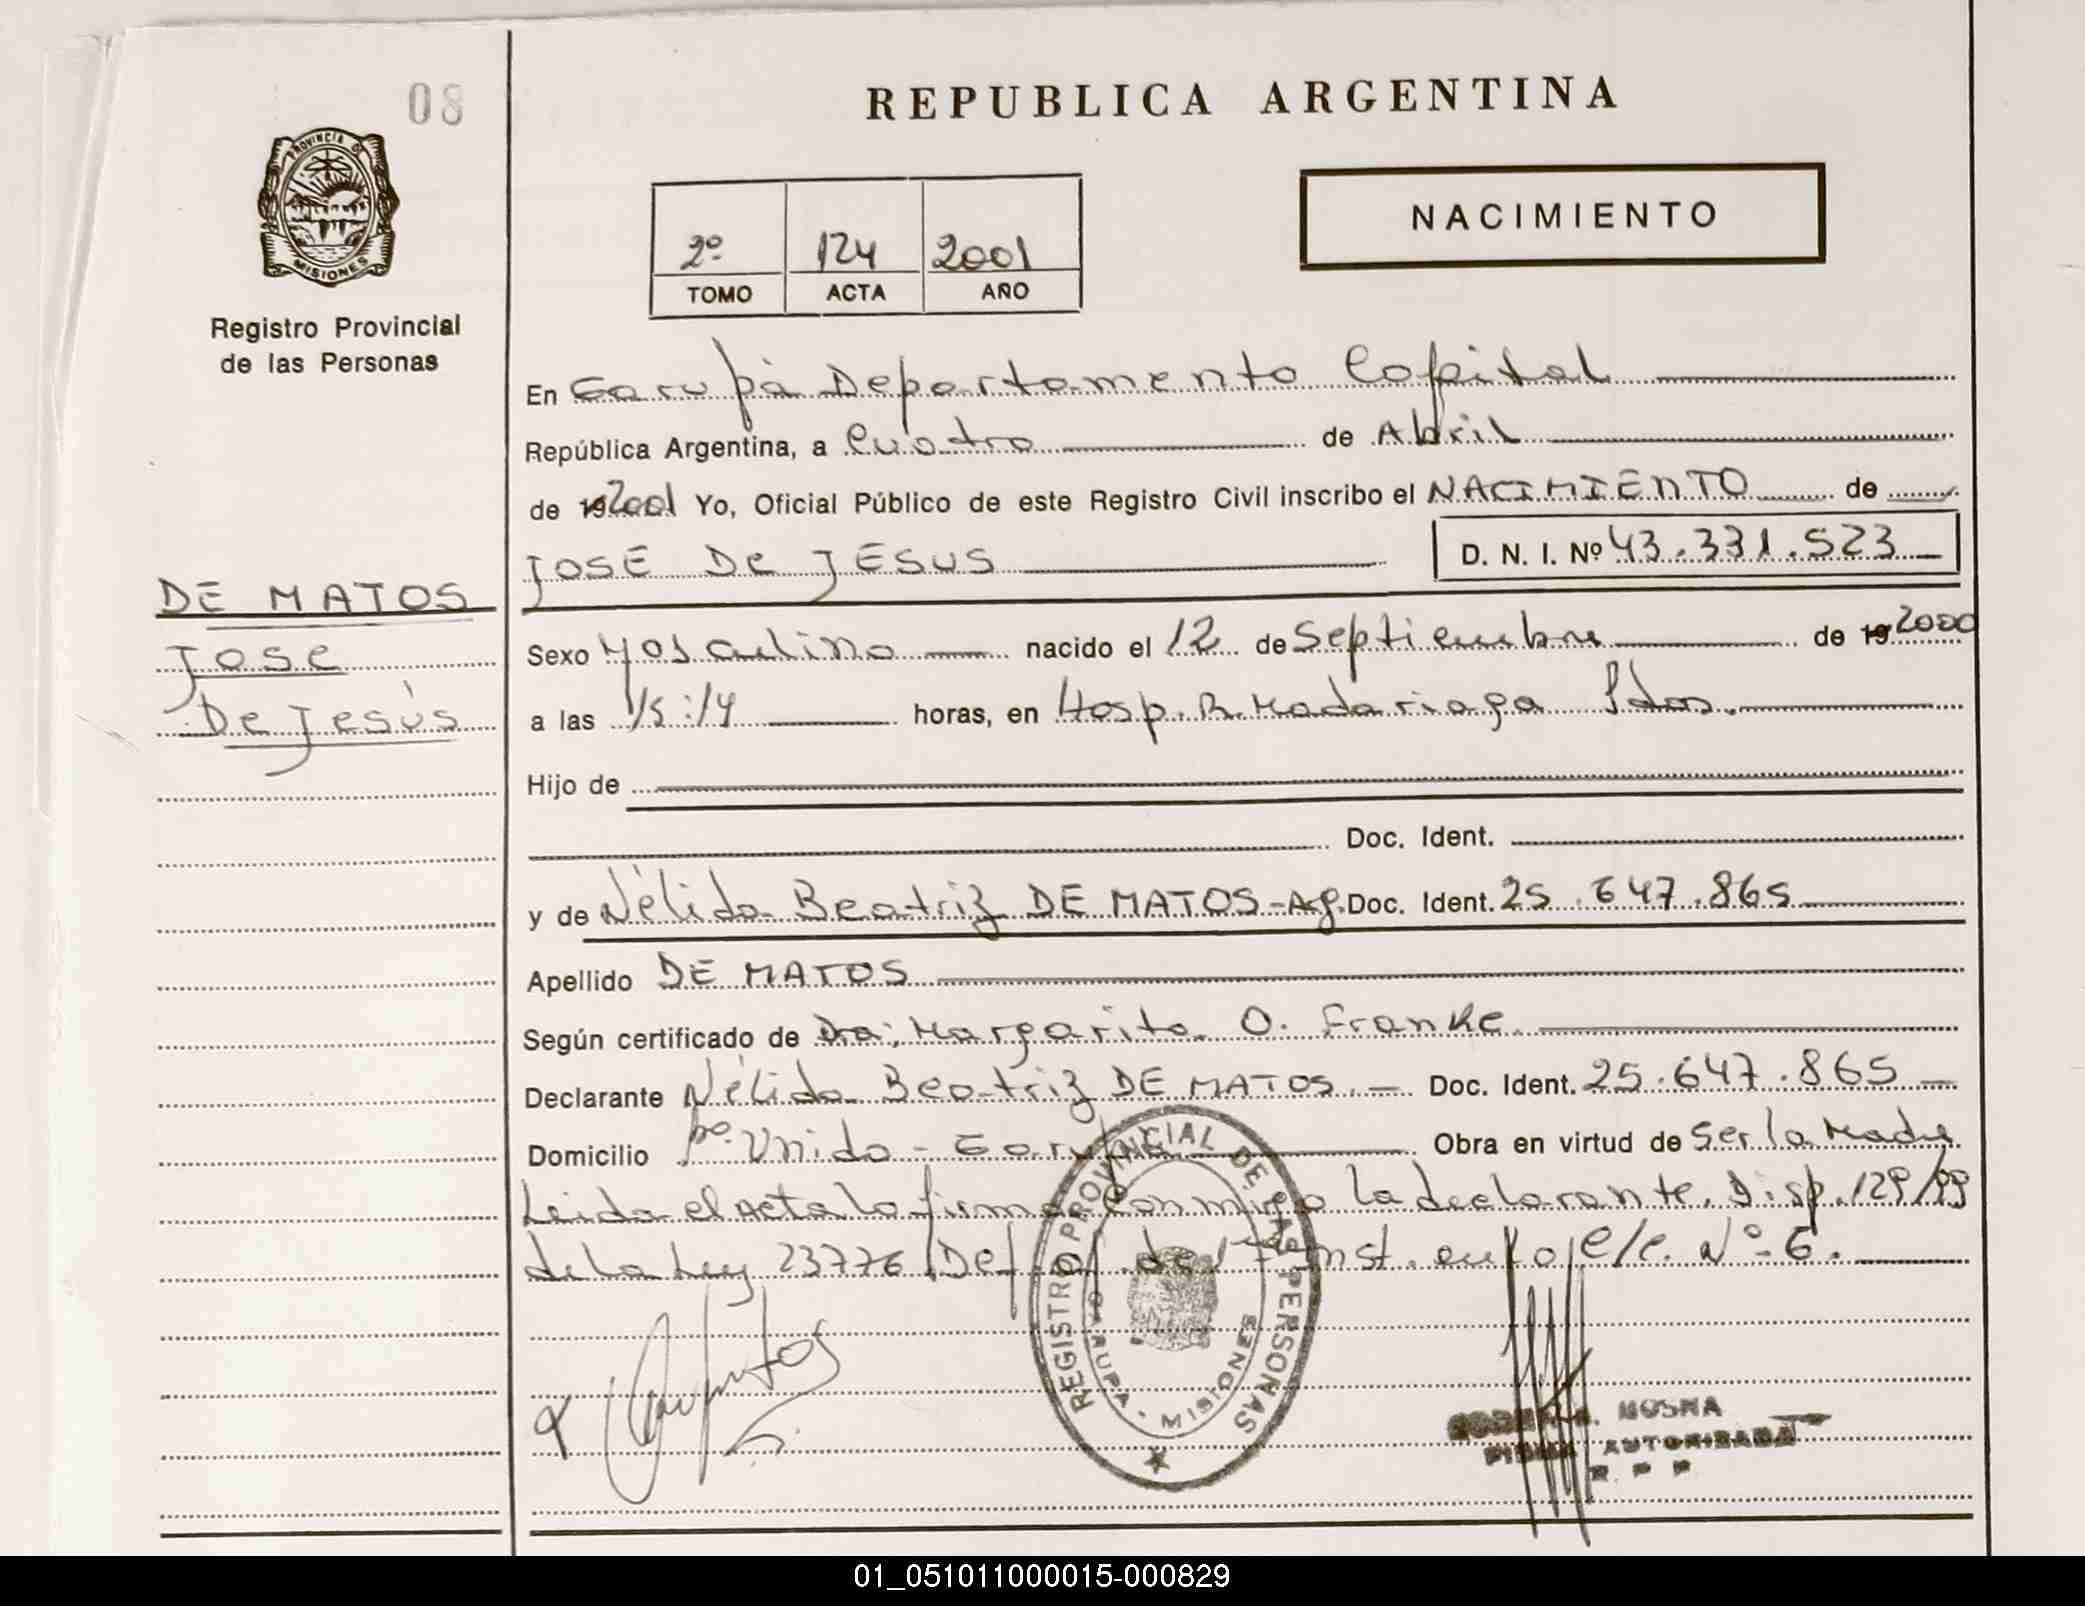 08
REPUBLICA ARGENTINA
PROVINCIA D
MISIONES
NACIMIENTO
2º 124 2001
TOMO ACTA AÑO
Registro Provincial
de las Personas
En Garupá Departamento Capital
República Argentina, a Cuatro de Abril
de 192001 Yo, Oficial Público de este Registro Civil inscribo el NACIMIENTO de
JOSE De JESUS D. N. I. Nº 43.331.523
DE MATOS
Jose
De Jesús
Sexo Masculino nacido el 12 de Septiembre de 19 2000
a las 15:14 horas, en Hosp. R. Madariaga Pdas.
Hijo de
Doc. Ident.
y de Nélida Beatriz DE MATOS-Arg. Doc. Ident. 25.647.865
Apellido DE MATOS
Según certificado de Dra; Margarita O. Franke
Declarante Nélida Beatriz DE MATOS. Doc. Ident. 25.647.865
Domicilio Bº. Unido - Garupá Obra en virtud de Ser la Madre
Leida el Acta la firma conmigo la declarante. Disp. 129/99
de la Ley 23776 Inst. Nº 6.
REGISTRO PROVINCIAL DE LAS PERSONAS
GARUPA - MISIONES
MOSNA
FIRMA AUTORIZADA
R. P. P.
01_051011000015-000829